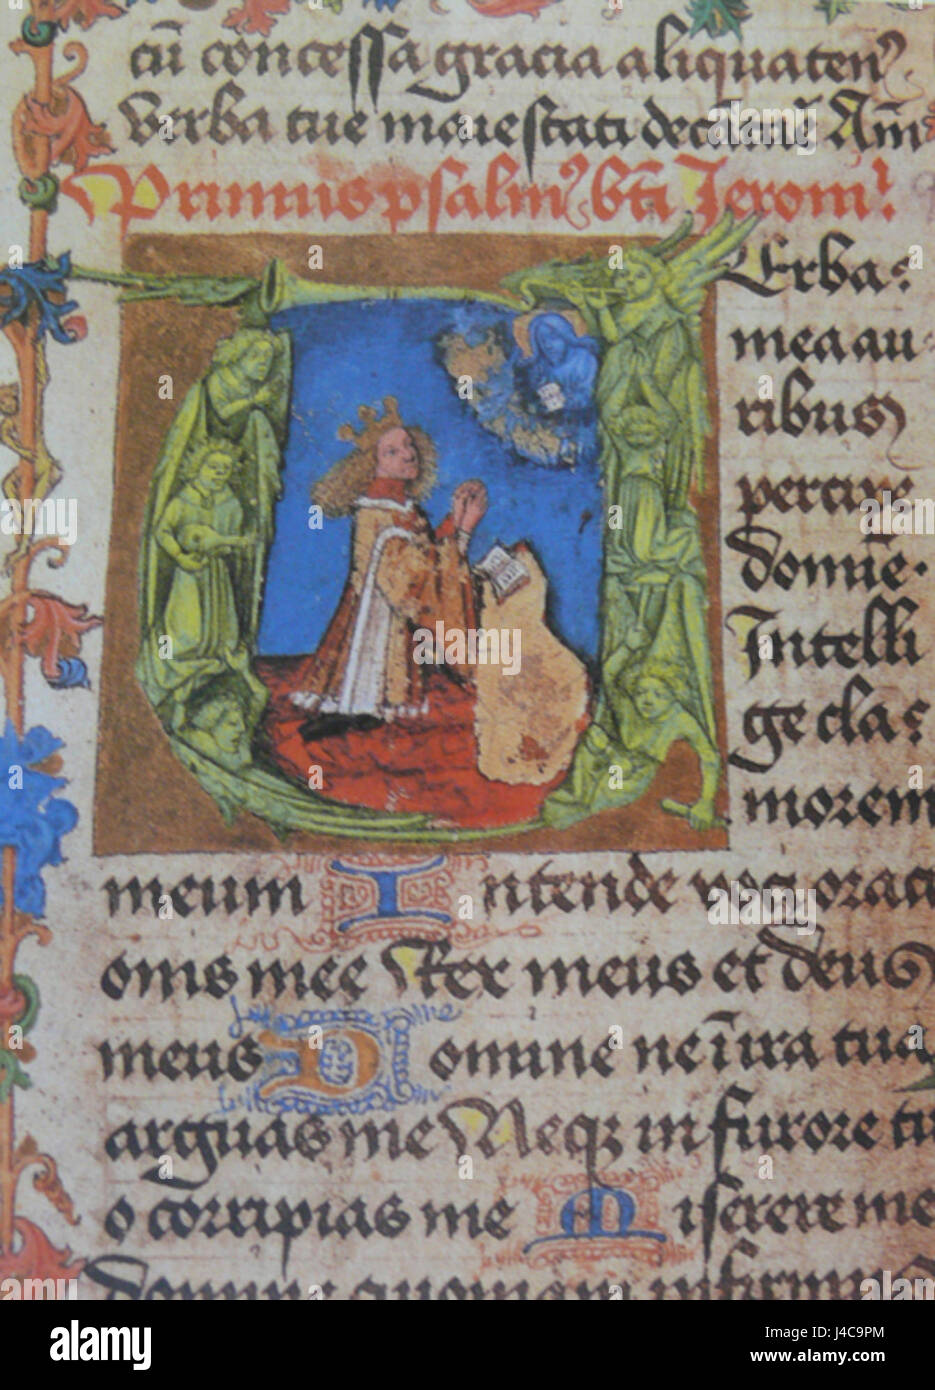 cū concessa gracia aliquaten⁹
verba tue maiestati decātare Am̄
Primus psalm⁹ bt̄i Jeronī
Verba
mea au
ribus
percipe
domīe.
Intelli
ge cla
morem
meum Intende voci oraci
onis mee Rex meus et deus
meus Domine ne ī ira tua
arguas me Neqꝫ in furore tu
o corripias me Miserere me
alamy
Image ID: J4C9PM
www.alamy.com